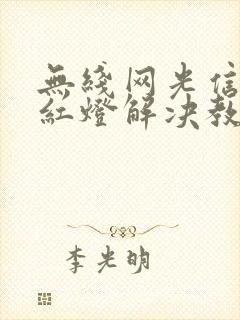 無綫网光信
紅燈解决教
李光明